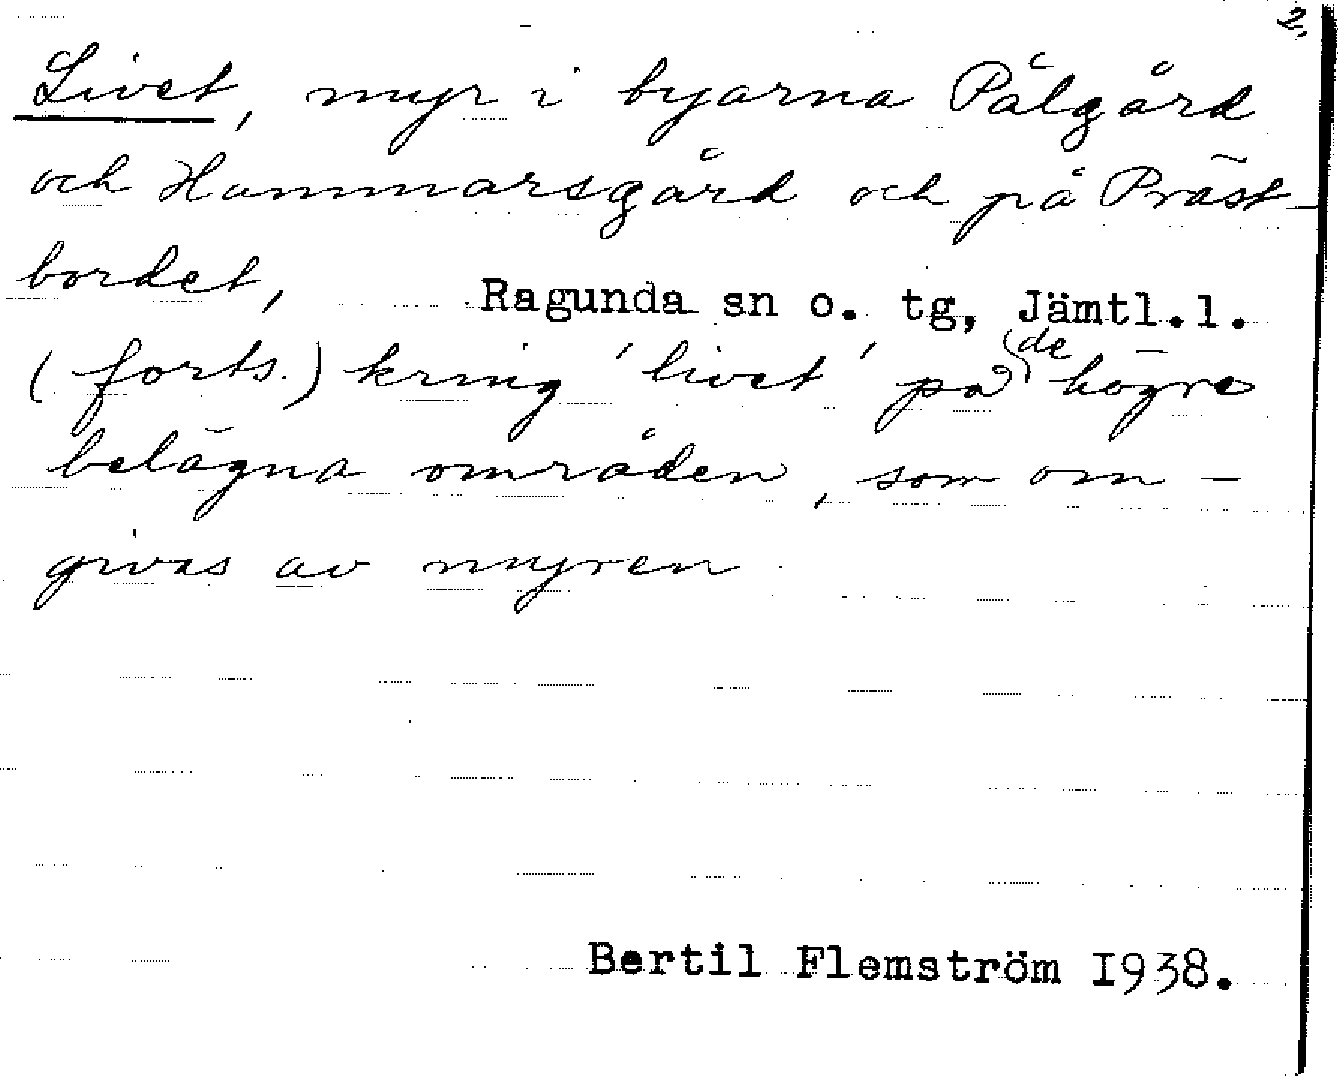 2.
Livet, myr i byarna Pålgård
och Hammarsgård och på Präst-
bordet, Ragunda sn o. tg, Jämtl.l.
(forts.) kring 'livet' på de högre
belägna områden, som om-
givas av myren.
Bertil Flemström 1938.